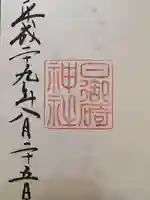 平成二十九年八月二十五日
日御碕
神社